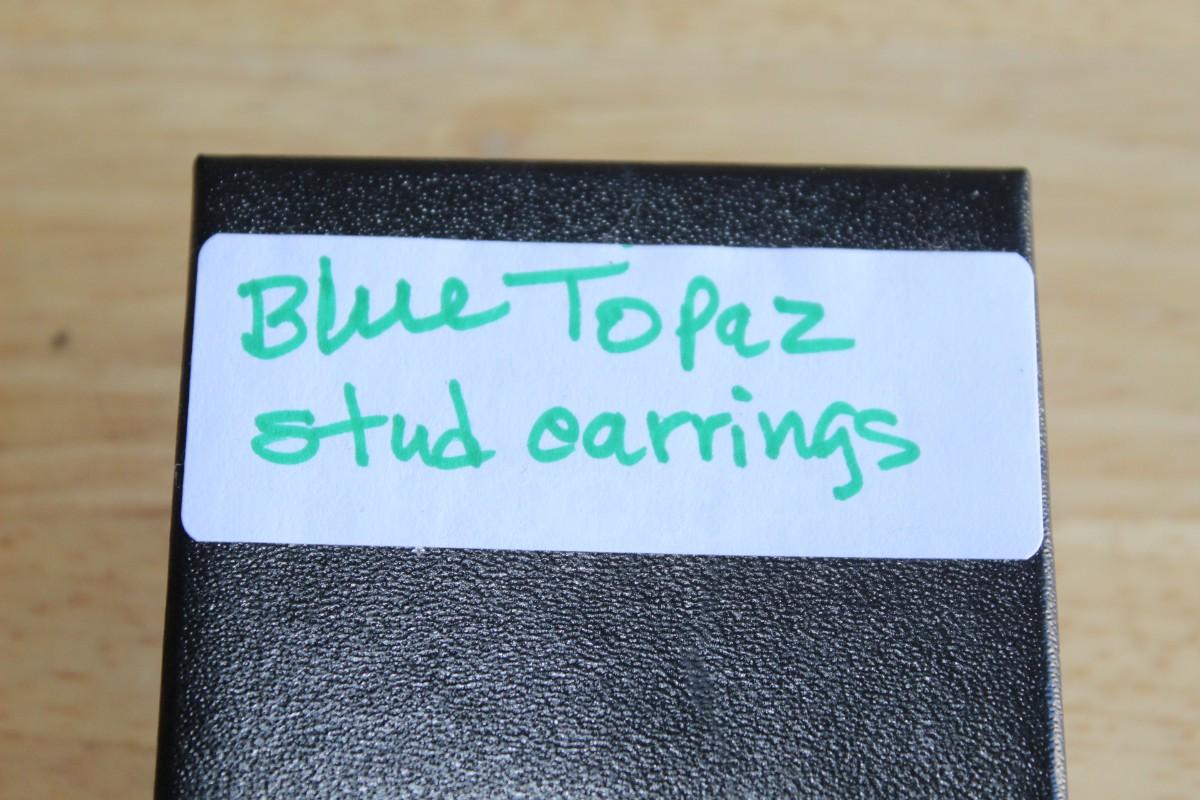 Blue Topaz
stud earrings